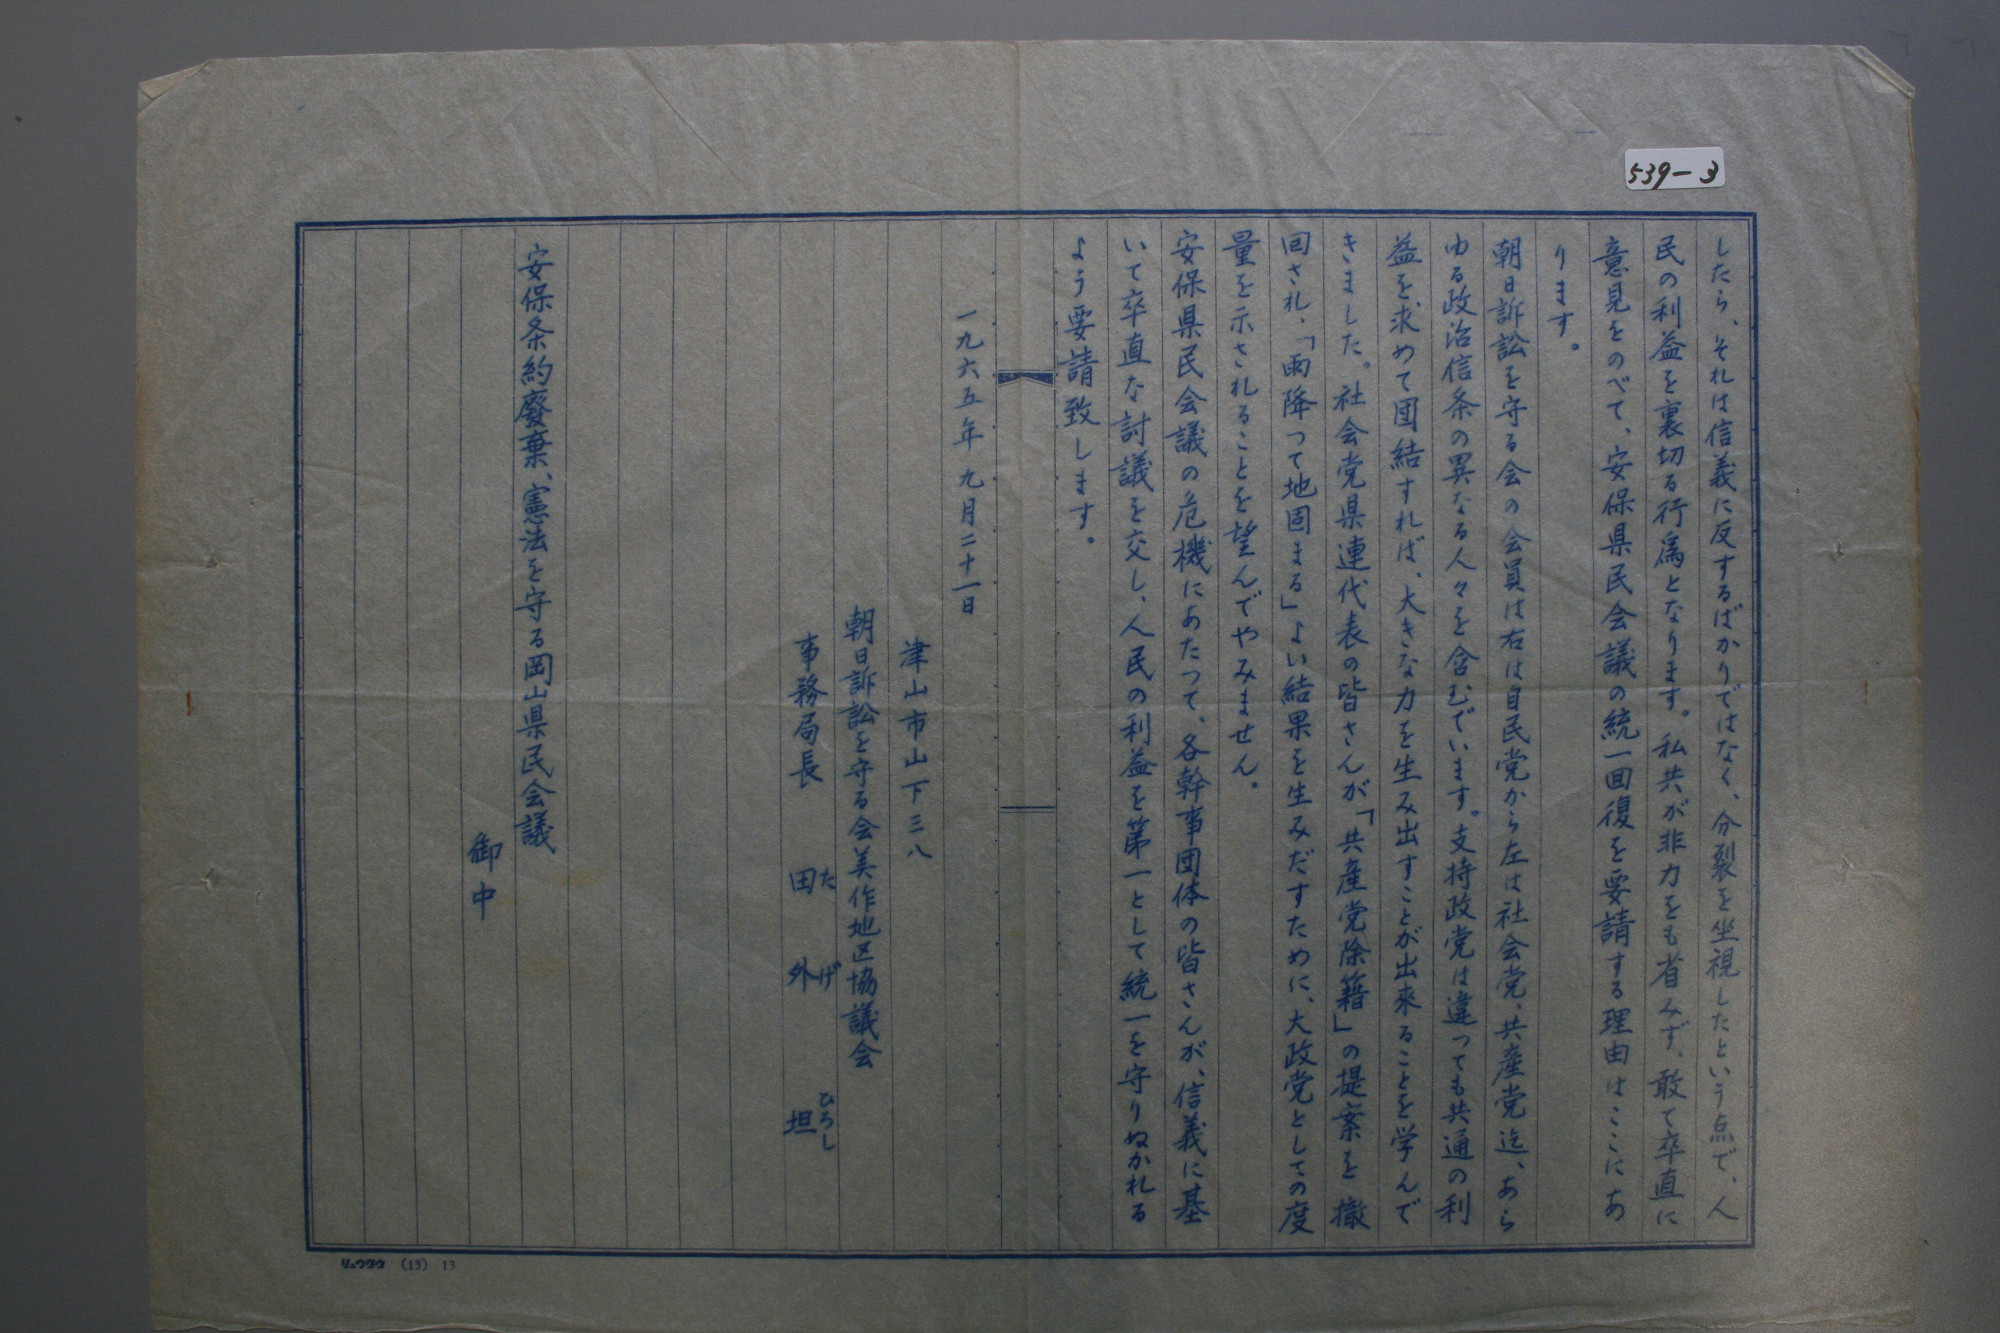 539-3
したら、それは信義に反するばかりではなく、分裂を坐視したという点で、人
民の利益を裏切る行為となります。私共が非力をも省みず、敢て卒直に
意見をのべて、安保県民会議の統一回復を要請する理由はここにあ
ります。
朝日訴訟を守る会の会員は右は自民党から左は社会党、共産党迄、あら
ゆる政治信条の異なる人々を含むでいます。支持政党は違っても共通の利
益を求めて団結すれば、大きな力を生み出すことが出来ることを学んで
きました。社会党県連代表の皆さんが「共産党除籍」の提案を撤
回され、「雨降って地固まる」よい結果を生みだすために、大政党としての度
量を示されることを望んでやみません。
安保県民会議の危機にあたって、各幹事団体の皆さんが、信義に基
いて卒直な討議を交し、人民の利益を第一として統一を守りぬかれる
よう要請致します。
一九六五年九月二十一日
津山市山下三八
朝日訴訟を守る会美作地区協議会
事務局長 田外 坦
た げ ひろし
安保条約廢棄、憲法を守る岡山県民会議
御中
リュウワク (13) 13